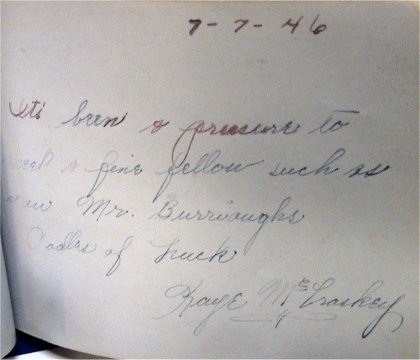 7-7-46
It's been a pleasure to
meet a fine fellow such as
you Mr. Burrioughs
Oodles of Luck
Kaye McCroskey